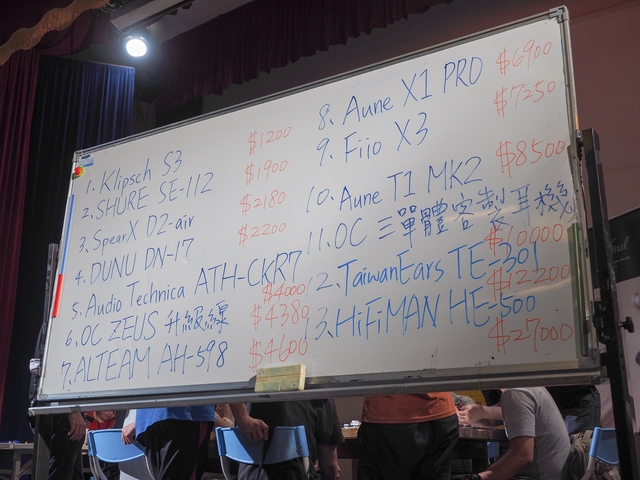 1. Klipsch S3 $1200
2. SHURE SE-112 $1900
3. SpearX D2-air $2180
4. DUNU DN-17 $2200
5. Audio Technica ATH-CKR7 $4000
6. OC ZEUS 升級線 $4380
7. ALTEAM AH-598 $4600
8. Aune X1 PRO $6900
9. Fiio X3 $7250
10. Aune T1 MK2 $8500
11. OC 三單體客製耳機 $10000
12. TaiwanEars TE-301 $12200
13. HiFiMAN HE-500 $27000